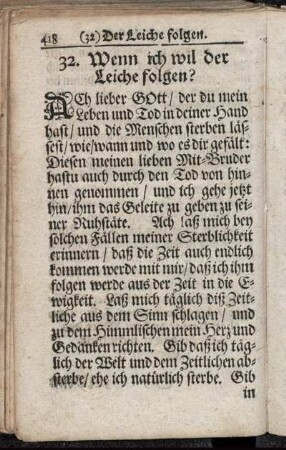 418 (32) Der Leiche folgen.
32. Wenn ich wil der
Leiche folgen?
ACh lieber GOtt / der du mein
Leben und Tod in deiner Hand
hast / und die Menschen sterben läs-
sest / wie / wann und wo es dir gefält:
Diesen meinen lieben Mit-Bruder
hastu auch durch den Tod von hin-
nen genommen / und ich gehe jetzt
hin / ihm das Geleite zu geben zu sei-
ner Ruhstäte. Ach laß mich bey
solchen Fällen meiner Sterblichkeit
erinnern / daß die Zeit auch endlich
kommen werde mit mir / daß ich ihm
folgen werde aus der Zeit in die E-
wigkeit. Laß mich täglich diß Zeit-
liche aus dem Sinn schlagen / und
zu dem Himmlischen mein Herz und
Gedanken richten. Gib daß ich täg-
lich der Welt und dem Zeitlichen ab-
sterbe / ehe ich natürlich sterbe. Gib
in